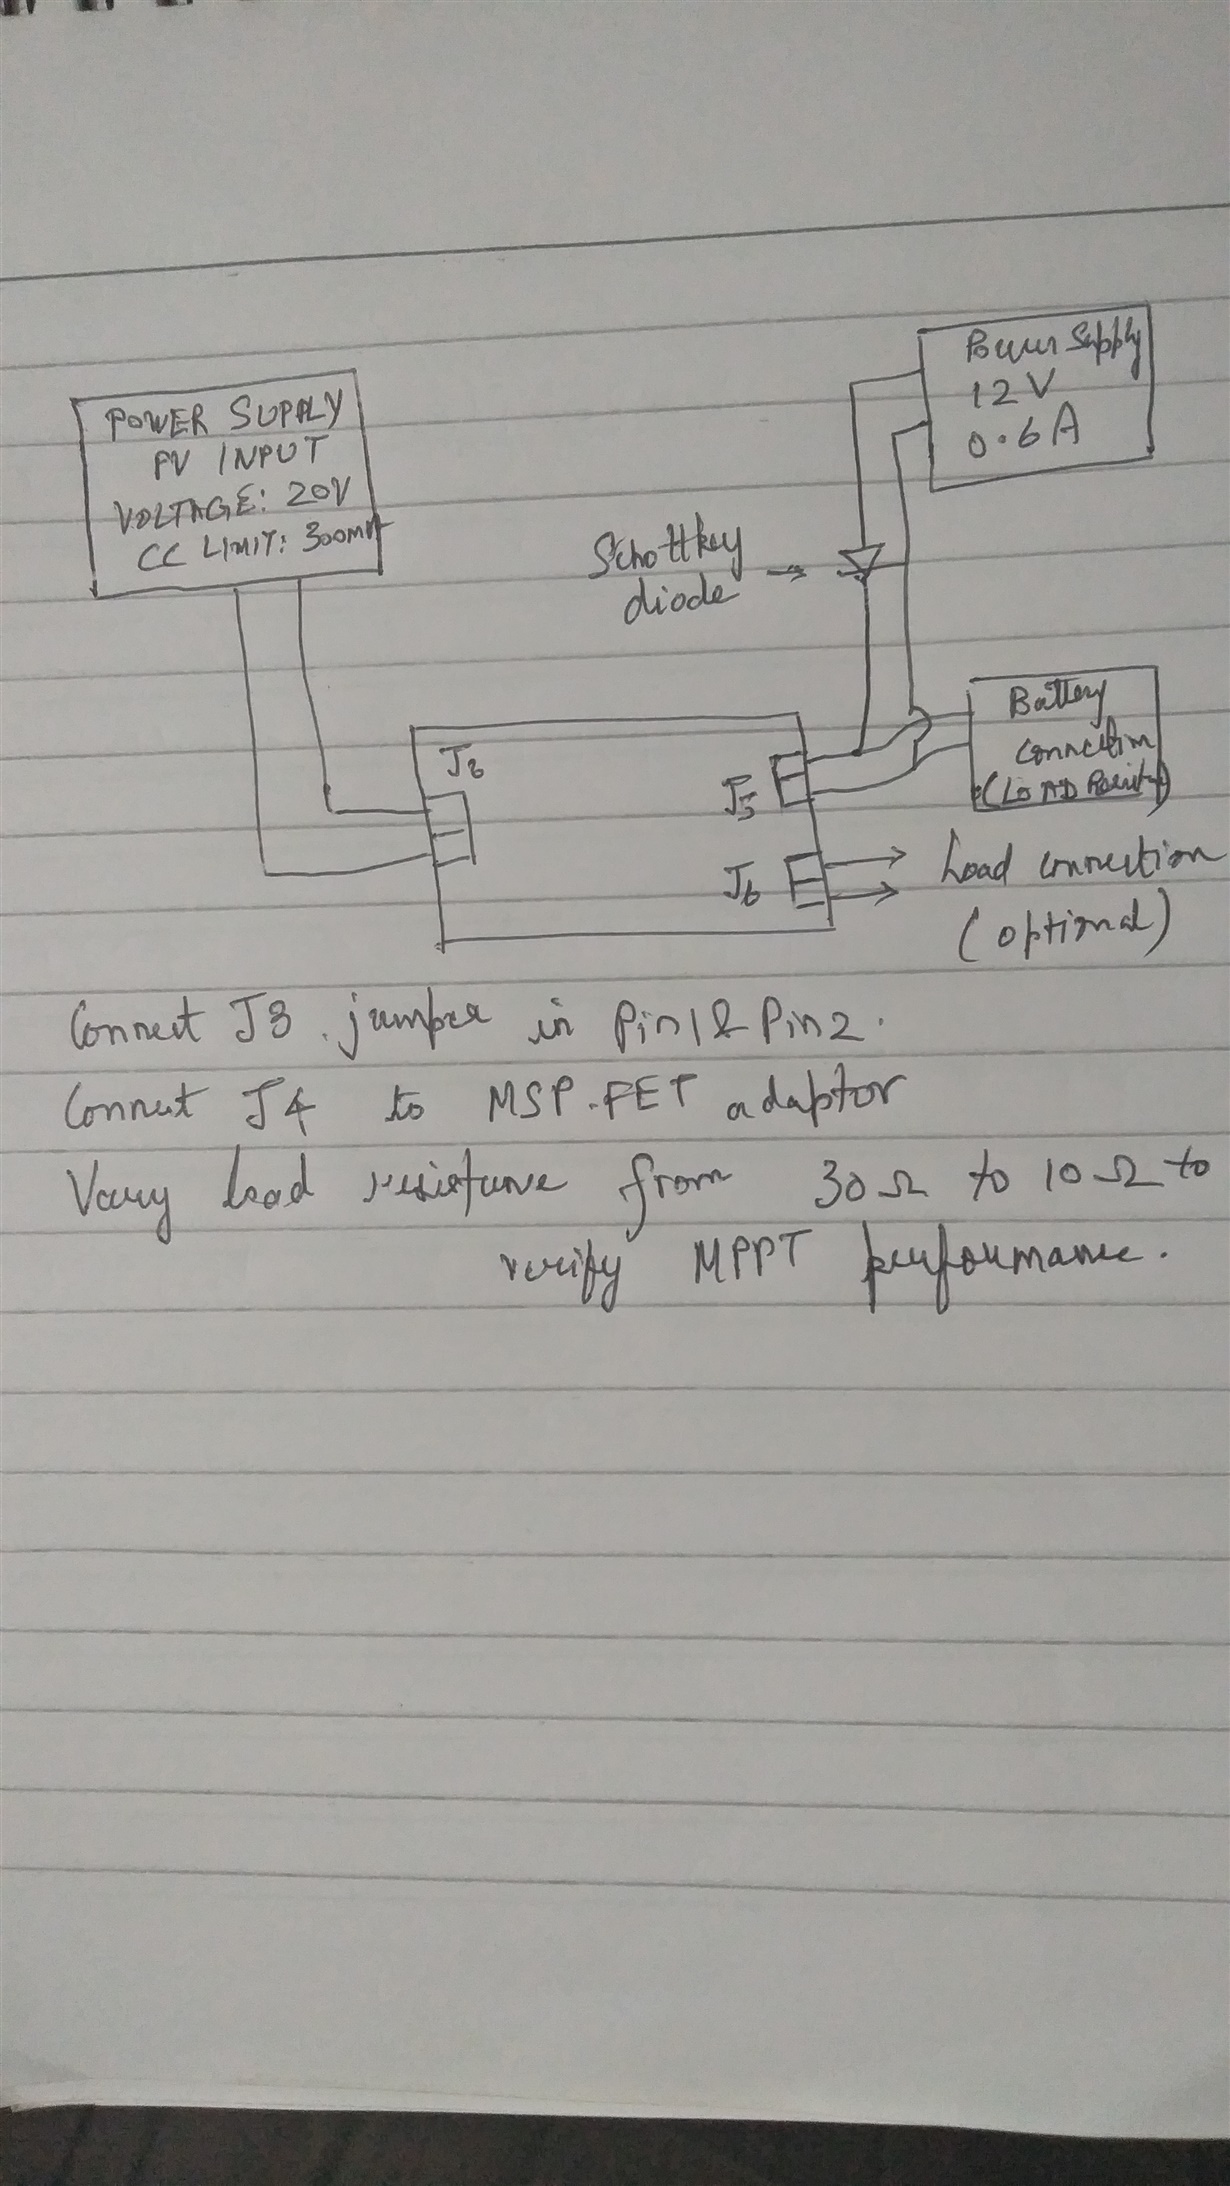 POWER SUPPLY
PV INPUT
VOLTAGE: 20V
CC LIMIT: 300mA
Power Supply
12V
0.6A
Schottkey
diode
Battery
Connection
(LOAD Resistor)
J5
J6
Load connection
(optional)
Connect J3 jumper in Pin1 & Pin2.
Connect J4 to MSP-FET adaptor
Vary load resistance from 30Ω to 10Ω to
verify MPPT performance.